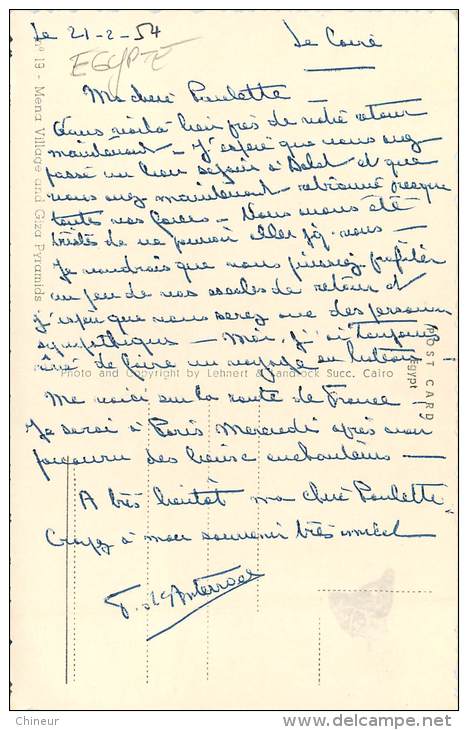 Le 21-2-54
Le Caire
EGYPTE
No 19 - Mena Village and Giza Pyramids
Ma chère Paulette -
Vous voilà bien près de votre retour
maintenant - J'espère que vous avez
passé un bon séjour à et que
vous avez maintenant retrouvé presque
toutes vos forces - Nous avons été
tristes de ne pouvoir aller vous -
Je voudrais que vous puissiez profiter
un peu de vos escales de retour et
j'espère que vous serez avec des personnes
sympathiques - Moi, j'ai toujours
rêvé de faire un voyage en bateau !
Photo and Copyright by Lehnert & Landrock Succ. Cairo
POST CARD
Egypt
Me voici sur la route de France -
Je serai à Paris Mercredi après avoir
parcouru des lieux enchanteurs -
A très bientôt ma chère Paulette
Croyez à mon souvenir très amical
Chineur
© delcampe.net